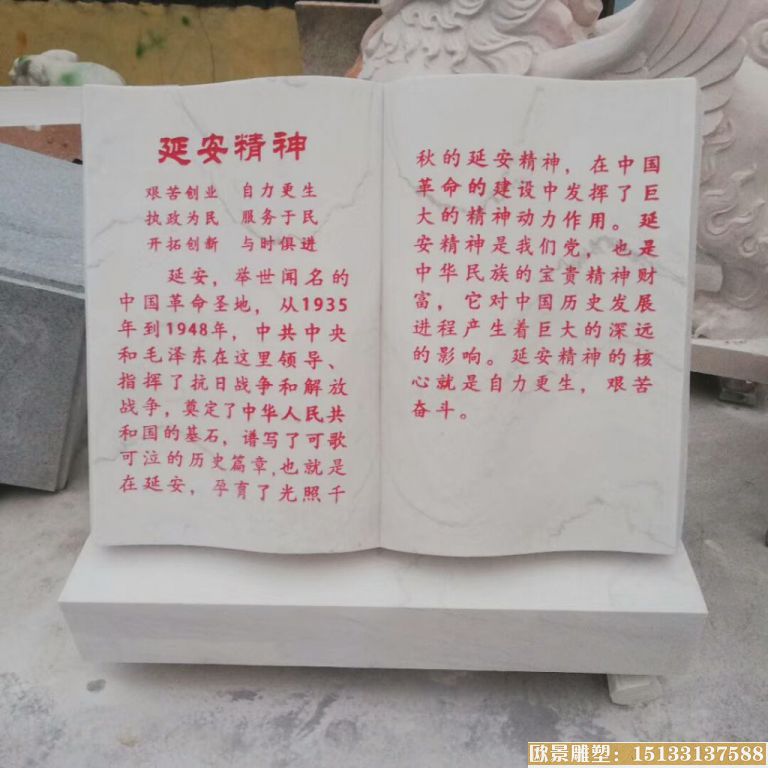 延安精神
艰苦创业 自力更生
执政为民 服务于民
开拓创新 与时俱进
延安，举世闻名的
中国革命圣地，从1935
年到1948年，中共中央
和毛泽东在这里领导、
指挥了抗日战争和解放
战争，奠定了中华人民共
和国的基石，谱写了可歌
可泣的历史篇章，也就是
在延安，孕育了光照千
秋的延安精神，在中国
革命的建设中发挥了巨
大的精神动力作用。延
安精神是我们党，也是
中华民族的宝贵精神财
富，它对中国历史发展
进程产生着巨大的深远
的影响。延安精神的核
心就是自力更生，艰苦
奋斗。
欧景雕塑：15133137588